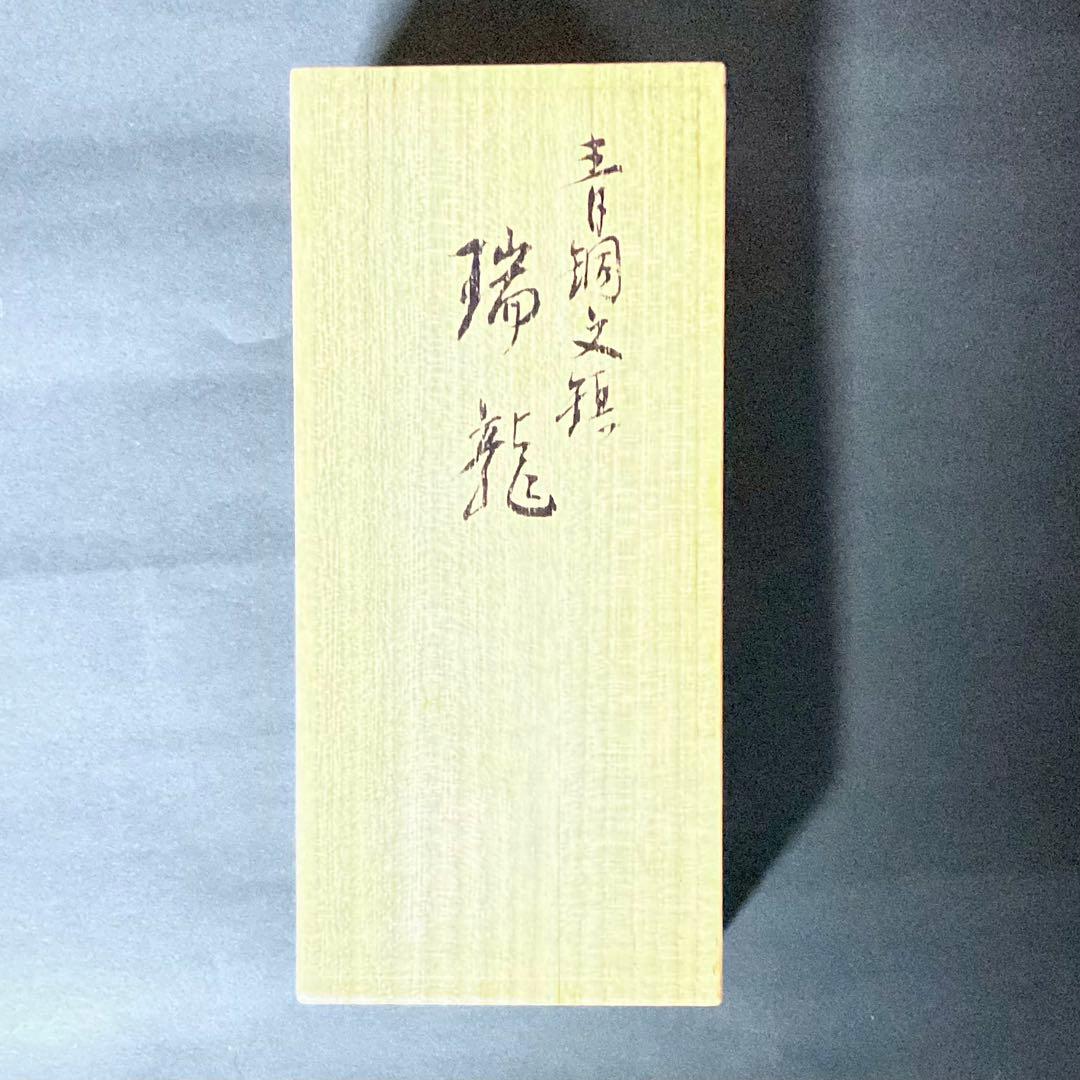 青銅文鎮
瑞龍